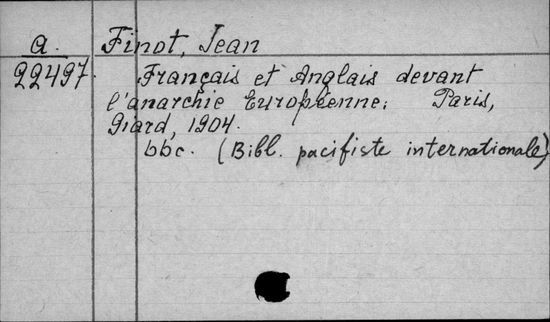 a. Finot, Jean
22497. Français et Anglais devant
l'anarchie Européenne. Paris,
Giard, 1904.
bbc. (Bibl. pacifiste internationale)